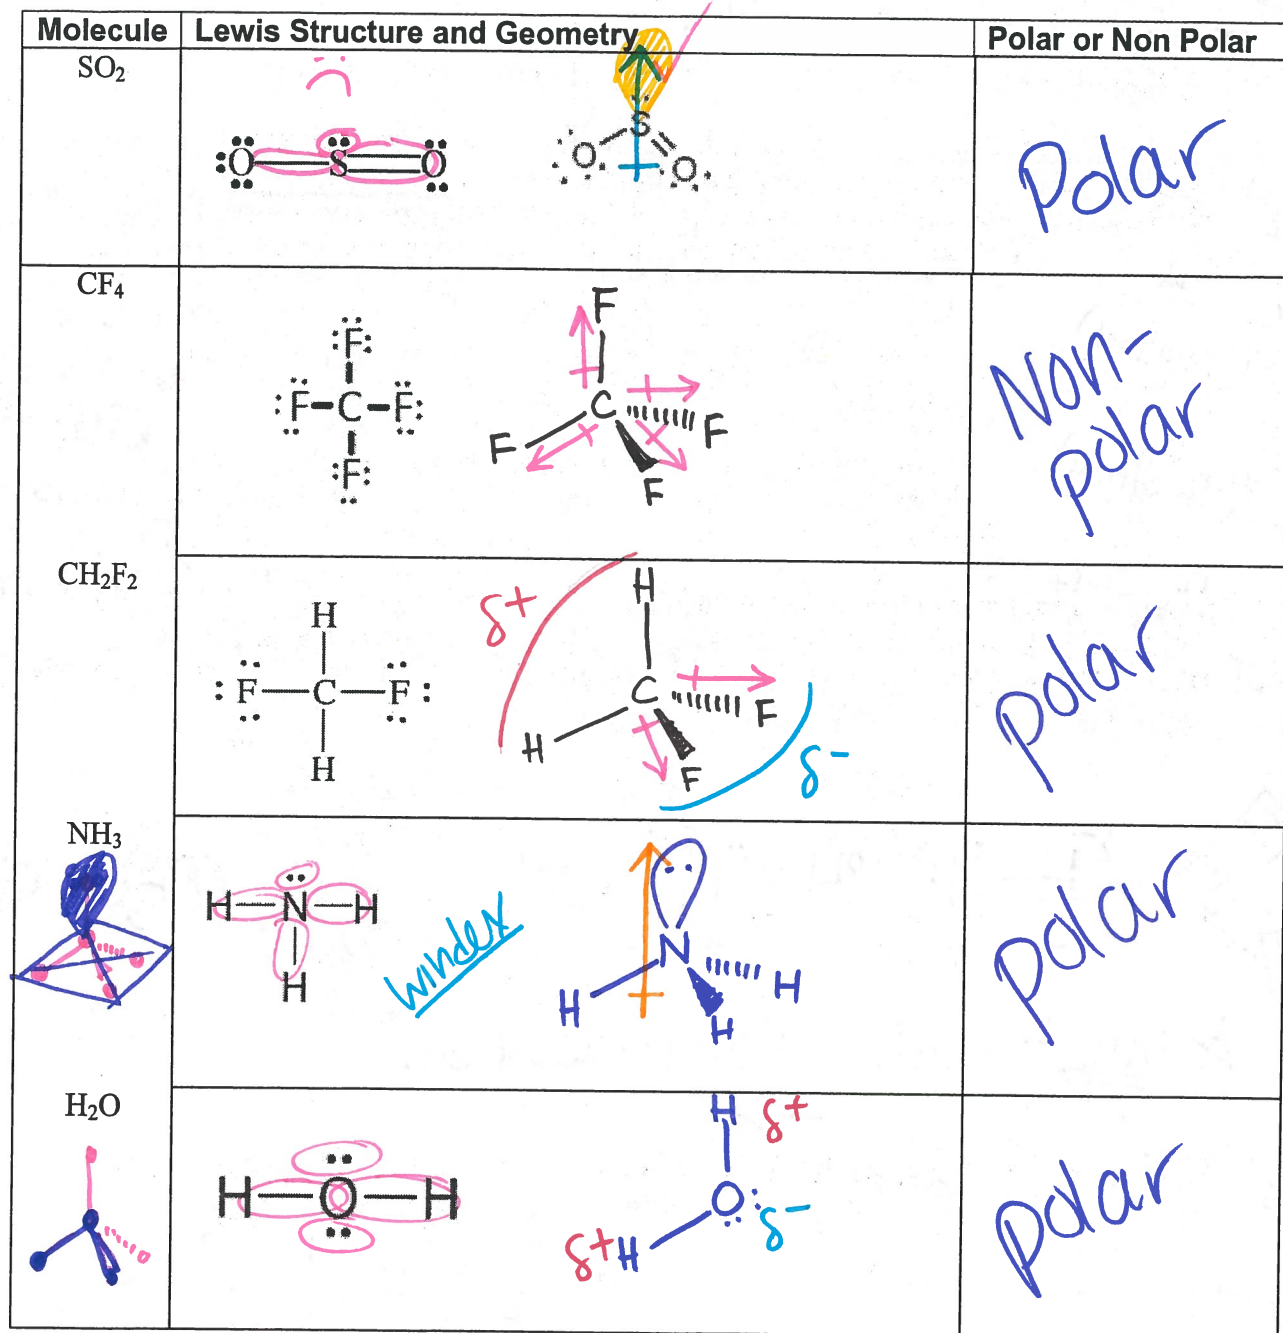 Molecule Lewis Structure and Geometry Polar or Non Polar
SO₂
:O—S=O
S
O O
Polar
CF₄
F
F—C—F
F
F
C
F F
F
Non-
polar
CH₂F₂
H
F—C—F
H
δ+
H
C
F
H
F
δ-
polar
NH₃
H—N—H
H
windex
N
H H
H
polar
H₂O
H—O—H
H δ+
O δ-
δ+ H
polar